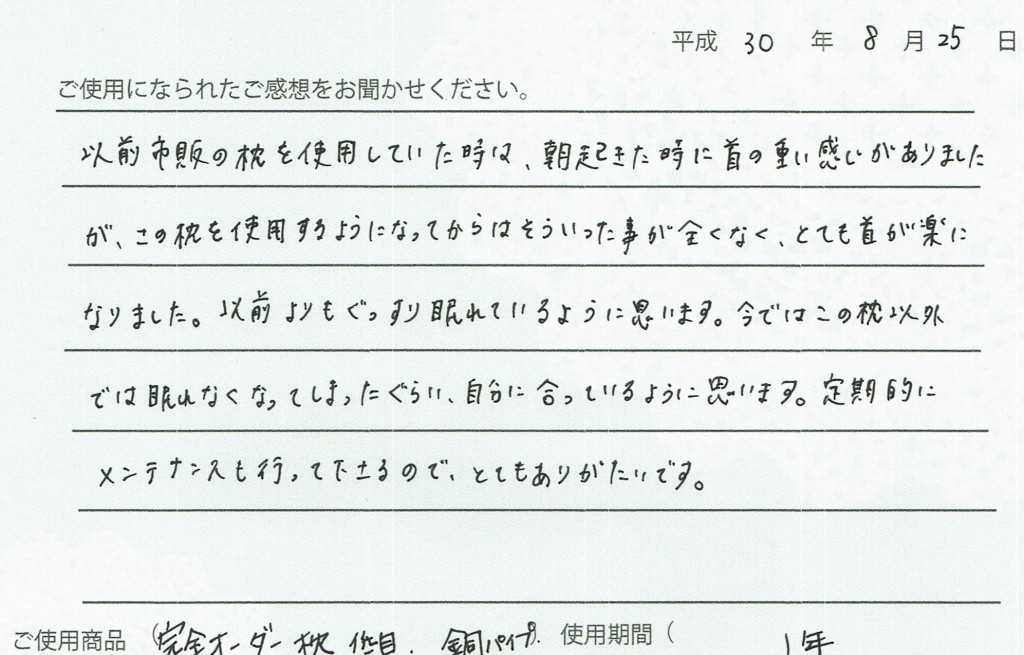 平成 30 年 8 月 25 日
ご使用になられたご感想をお聞かせください。
以前市販の枕を使用していた時は、朝起きた時に首の重い感じがありました
が、この枕を使用するようになってからはそういった事が全くなく、とても首が楽に
なりました。以前よりもぐっすり眠れているように思います。今ではこの枕以外
では眠れなくなってしまったぐらい、自分に合っているように思います。定期的に
メンテナンスも行って下さるので、とてもありがたいです。
ご使用商品 (完全オーダー枕 使用期間 ( 1年